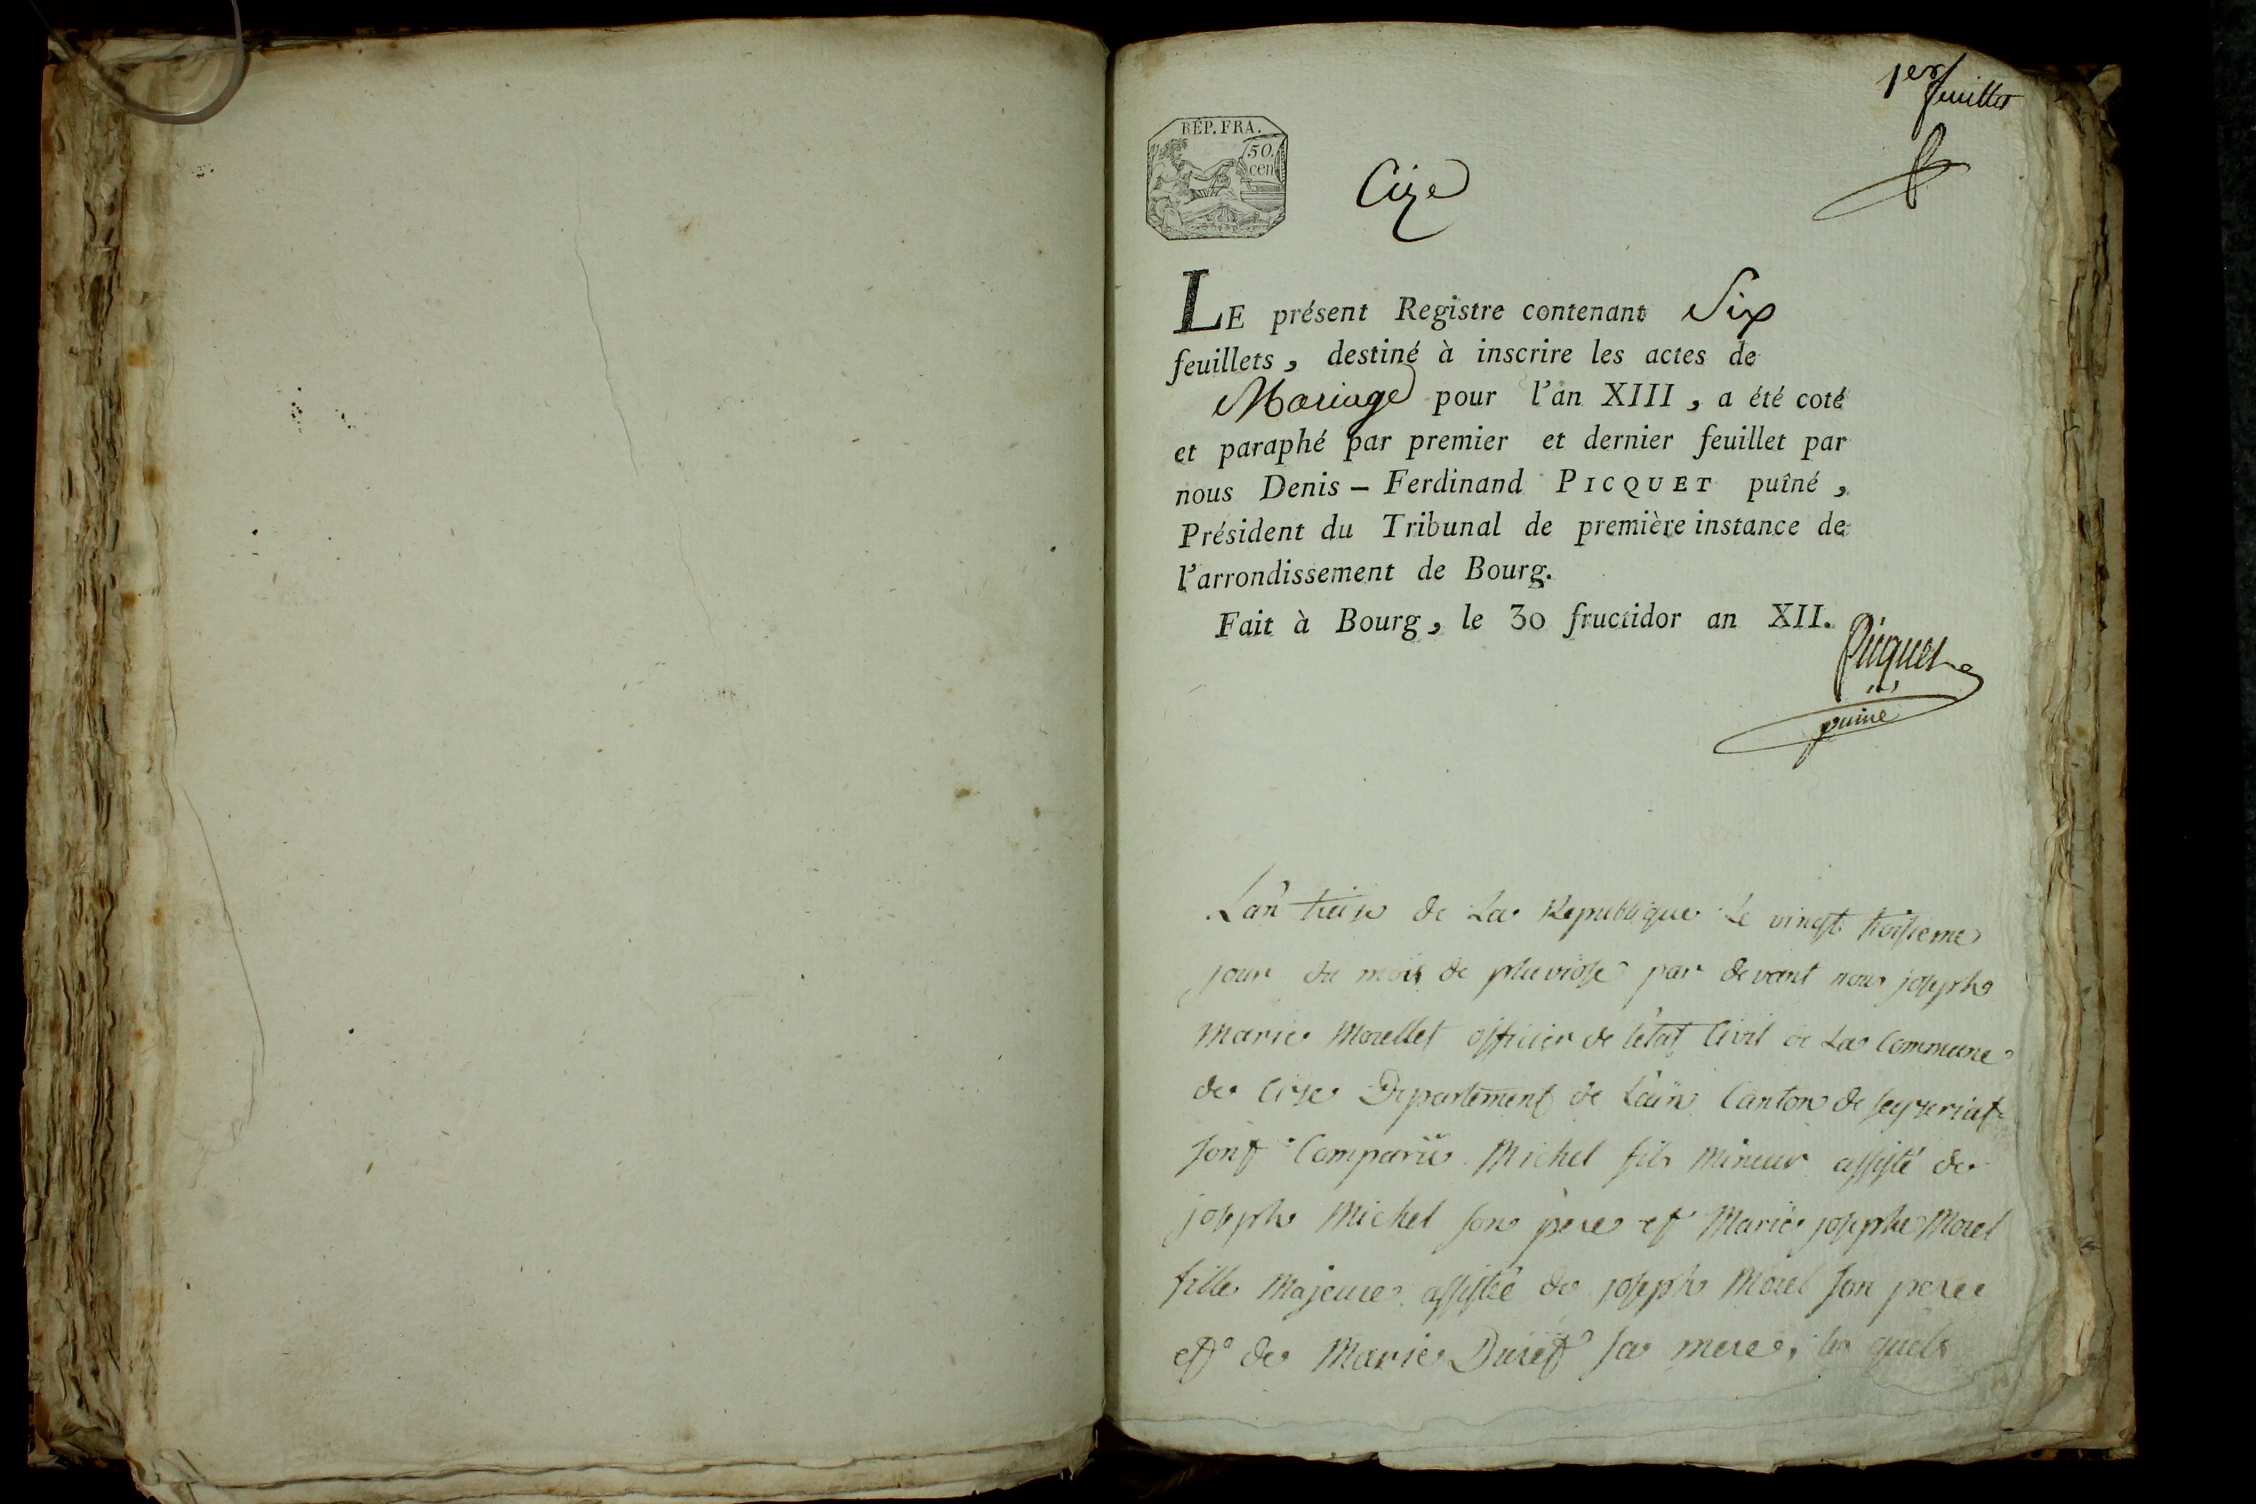 1er feuillet
RÉP. FRA.
50.
cen
Cize
LE présent Registre contenant Six
feuillets, destiné à inscrire les actes de
Mariage pour l'an XIII, a été coté
et paraphé par premier et dernier feuillet par
nous Denis-Ferdinand PICQUET puîné,
Président du Tribunal de première instance de
l'arrondissement de Bourg.
Fait à Bourg, le 30 fructidor an XII.
Picquet
puiné
L'an treize de La Republique Le vingt troisieme
jour du mois de pluviose par devant nous joseph
Marie Morellet officier de l'état Civil de La Commune
de Cize Departement de L'ain Canton de seyzeriat
sont Comparu Michel fils mineur assisté de
joseph Michel son père et Marie josephe Morel
fille Majeure assistée de joseph Morel son pere
et de Marie Duret sa mere, les quels